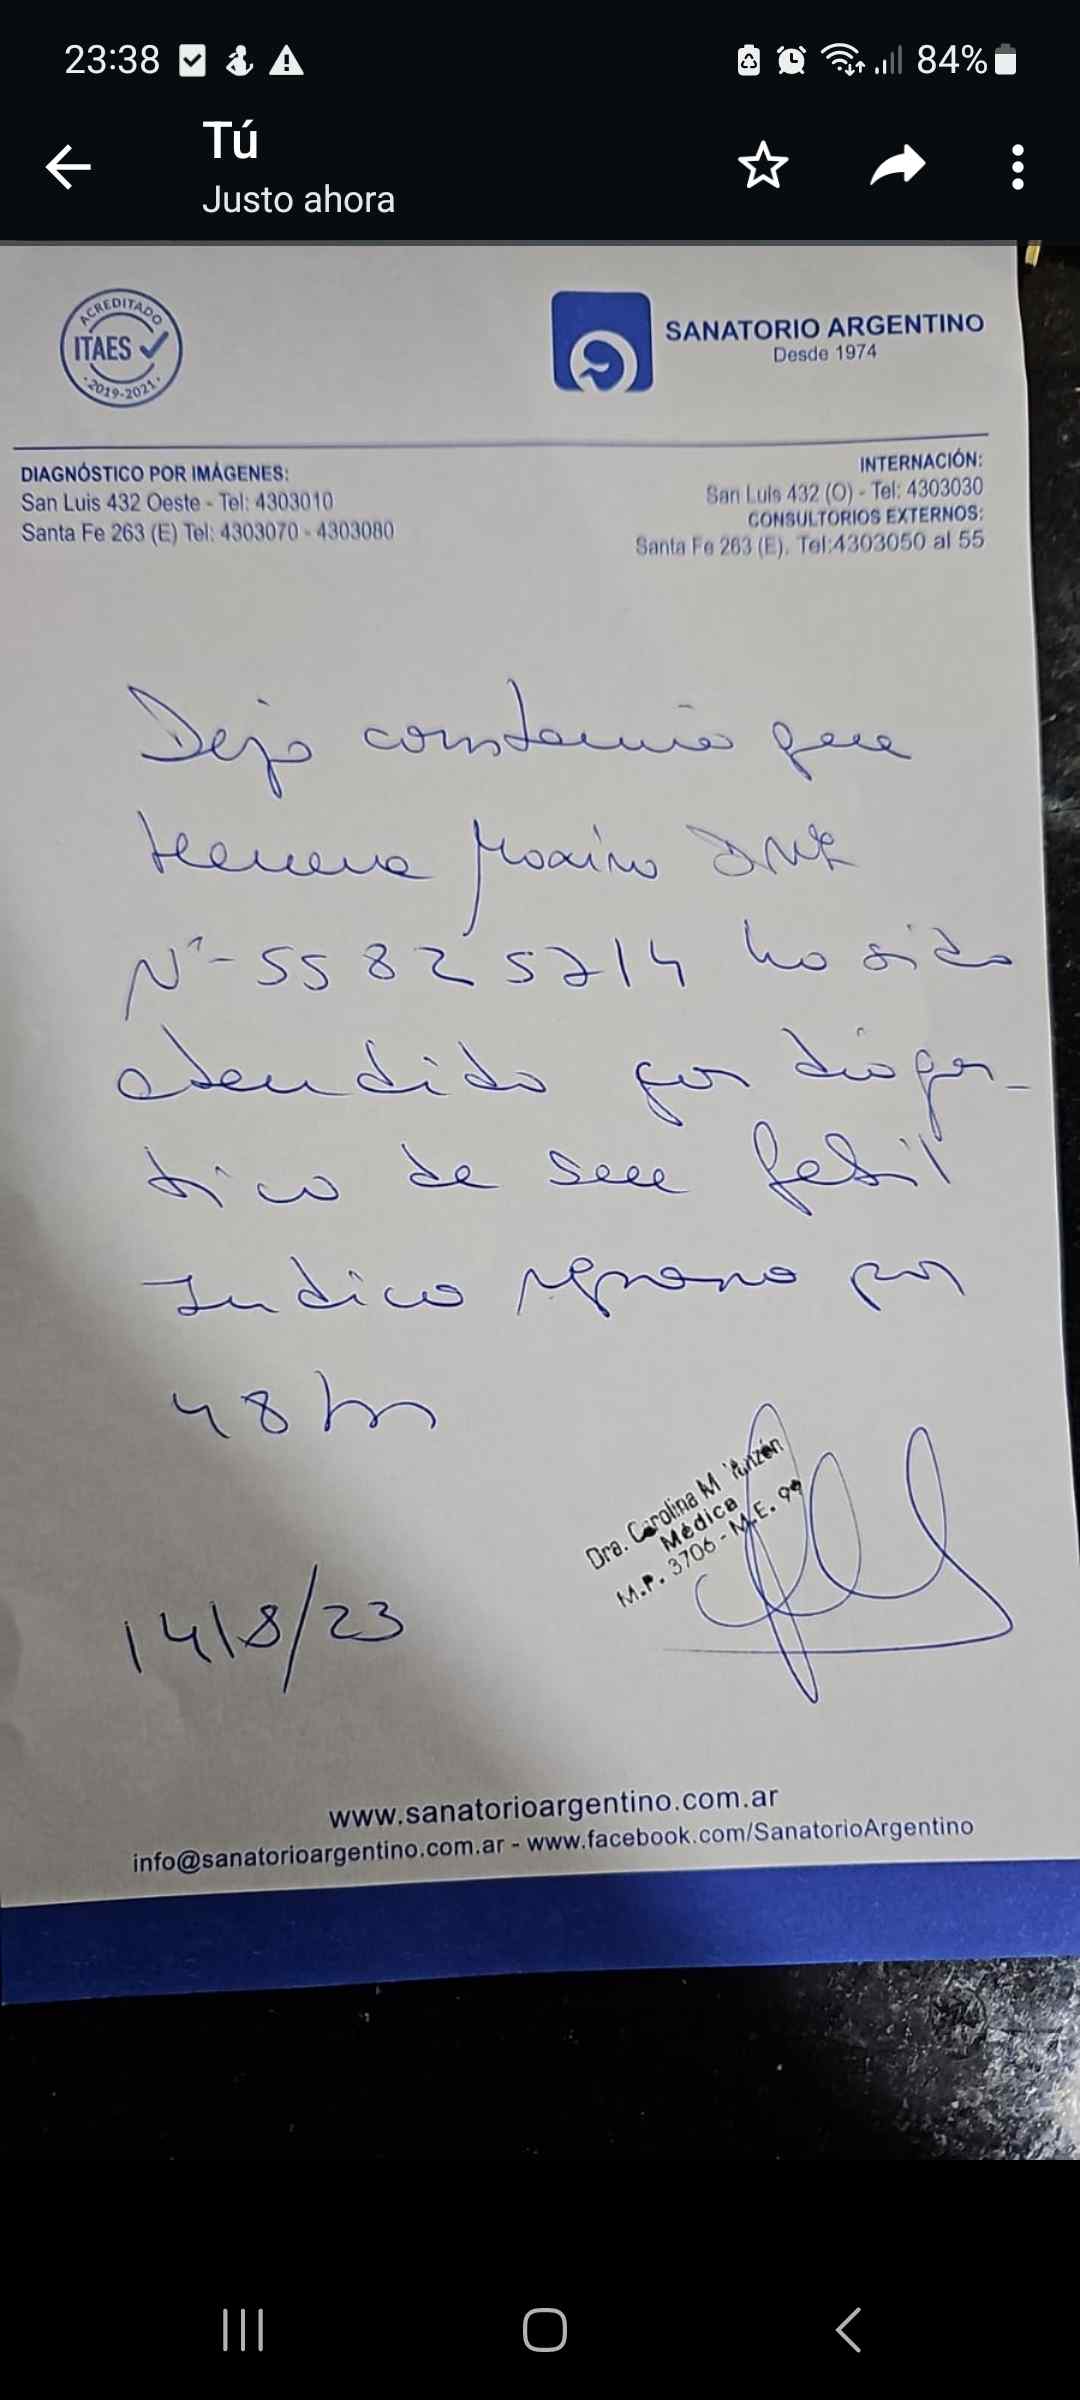 23:38
84%
Tú
Justo ahora
ACREDITADO
ITAES
2019-2021
SANATORIO ARGENTINO
Desde 1974
DIAGNÓSTICO POR IMÁGENES:
San Luis 432 Oeste - Tel: 4303010
Santa Fe 263 (E) Tel: 4303070 - 4303080
INTERNACIÓN:
San Luis 432 (O) - Tel: 4303030
CONSULTORIOS EXTERNOS:
Santa Fe 263 (E). Tel:4303050 al 55
Dejo constancia que
DNI
Nº-55825714 ha sido
atendido por diagnos-
tico de febril
Indico reposo por
48 hs
Dra. Carolina M
Médica
M.P. 3706 - M.E. 99
14/8/23
www.sanatorioargentino.com.ar
info@sanatorioargentino.com.ar - www.facebook.com/SanatorioArgentino